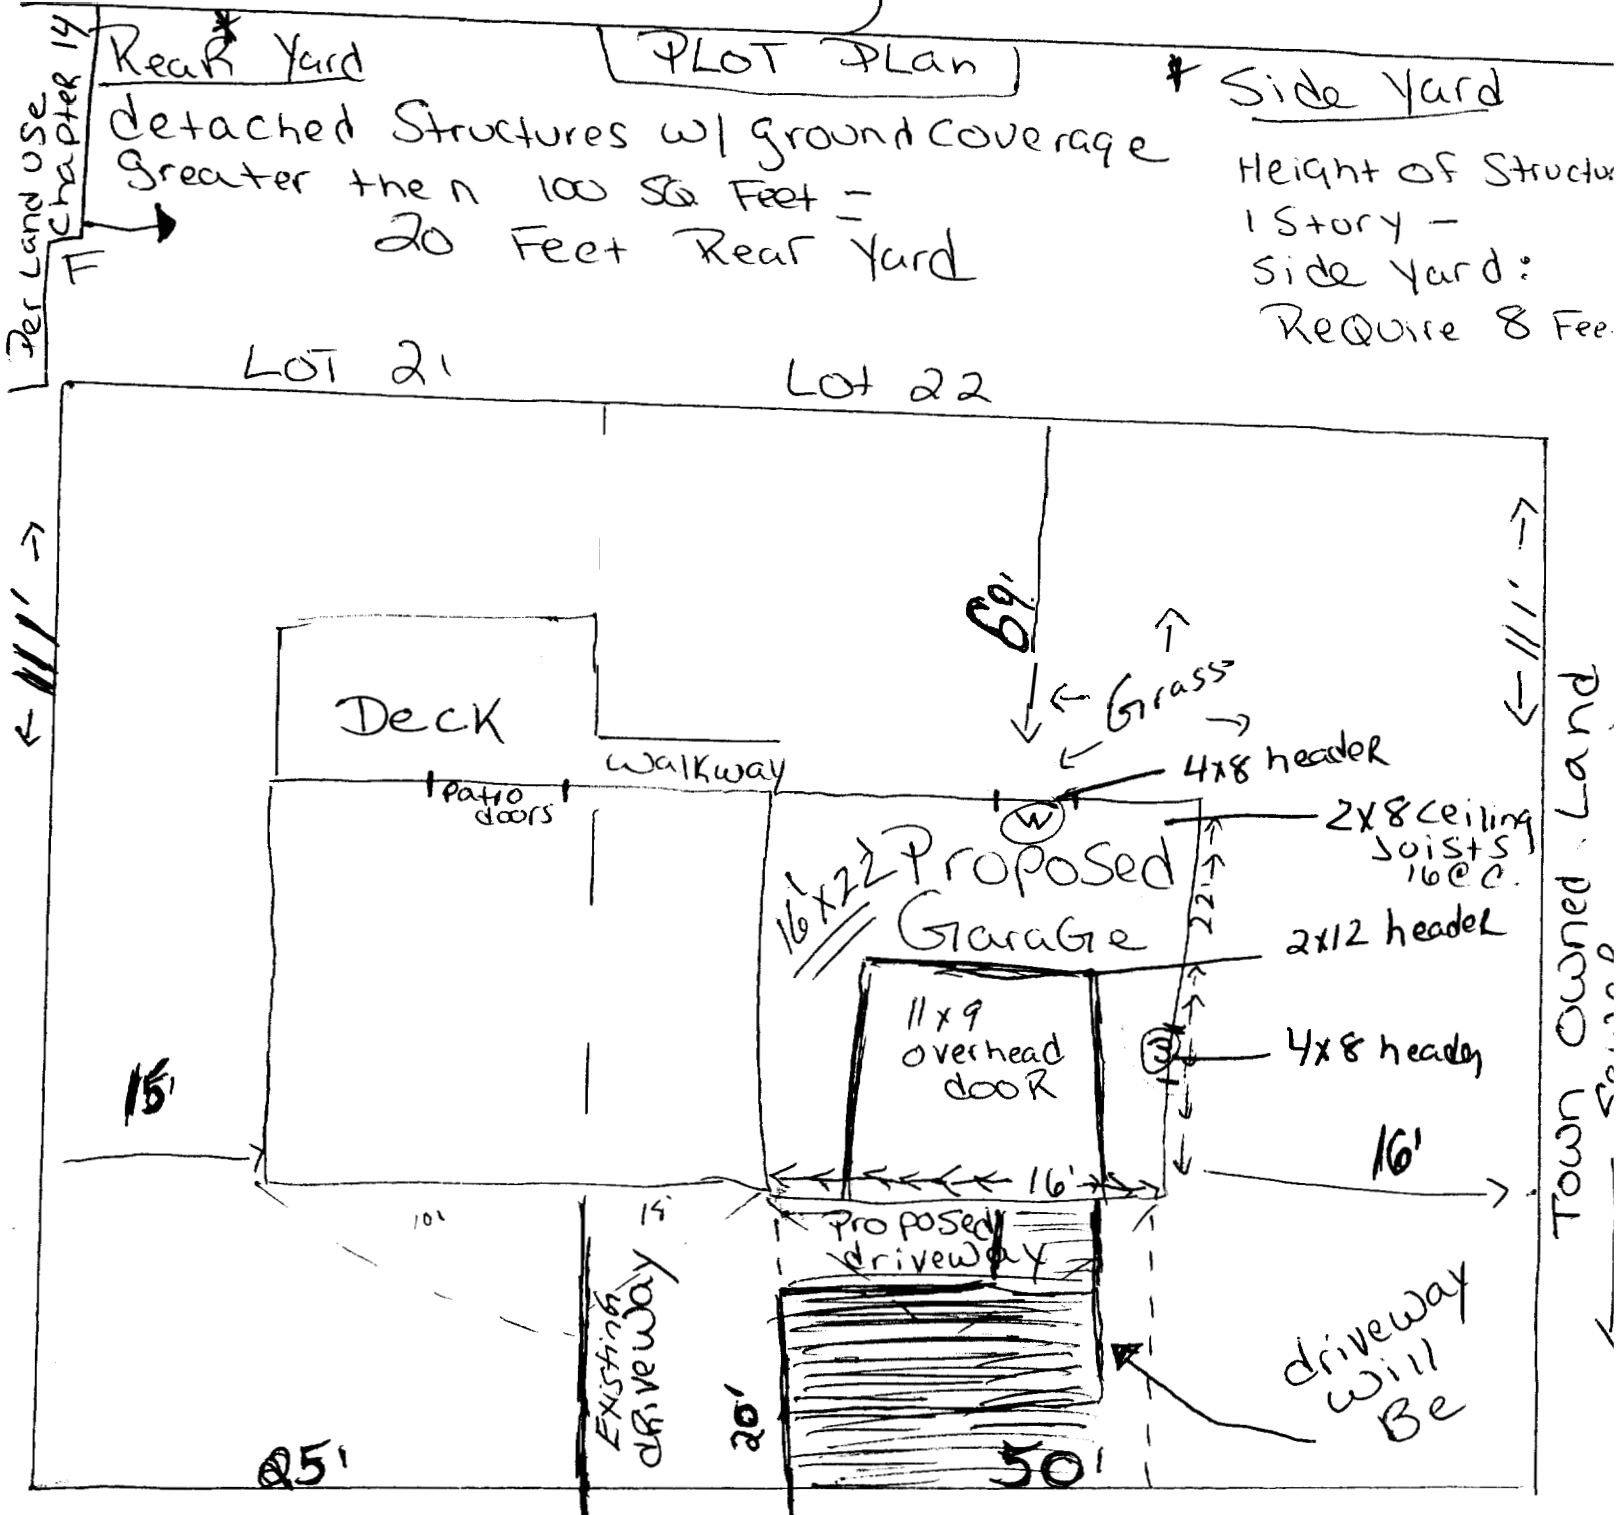 Per Land Use
Chapter 14
F
* Rear Yard
PLOT PLan
detached Structures w/ ground coverage
greater then 100 SQ Feet =
20 Feet Rear Yard
* Side Yard
Height of Structu
1 Story -
Side Yard:
Require 8 Fee
LOT 21
Lot 22
111'
69'
111'
Grass
Deck
walkway
patio
doors
4x8 header
W
2x8 ceiling
Joists
16@C.
16'x22'
Proposed
Garage
22'
2x12 header
11x9
overhead
dooR
W
4x8 header
15'
16'
16'
Town Owned Land
10'
Proposed
driveway
Existing
driveway
20'
driveway
will
Be
25'
50'